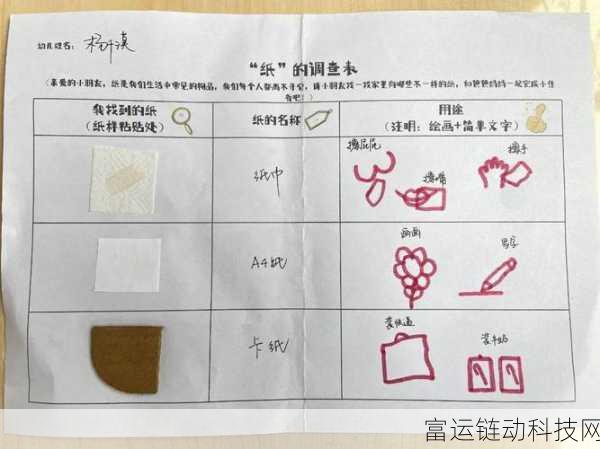 幼儿姓名：
“纸”的调查表
（亲爱的小朋友，纸是我们生活中常见的物品，我们每个人都离不开它，请小朋友找一找家里有哪些不一样的纸，和爸爸妈妈一起完成小任务吧！）
我找到的纸
（纸样粘贴处）
纸的名称
用途
（注明：绘画+简单文字）
纸巾
擦屁屁
擦嘴
擦手
A4纸
画画
写字
卡纸
装快递
富运链动科技网